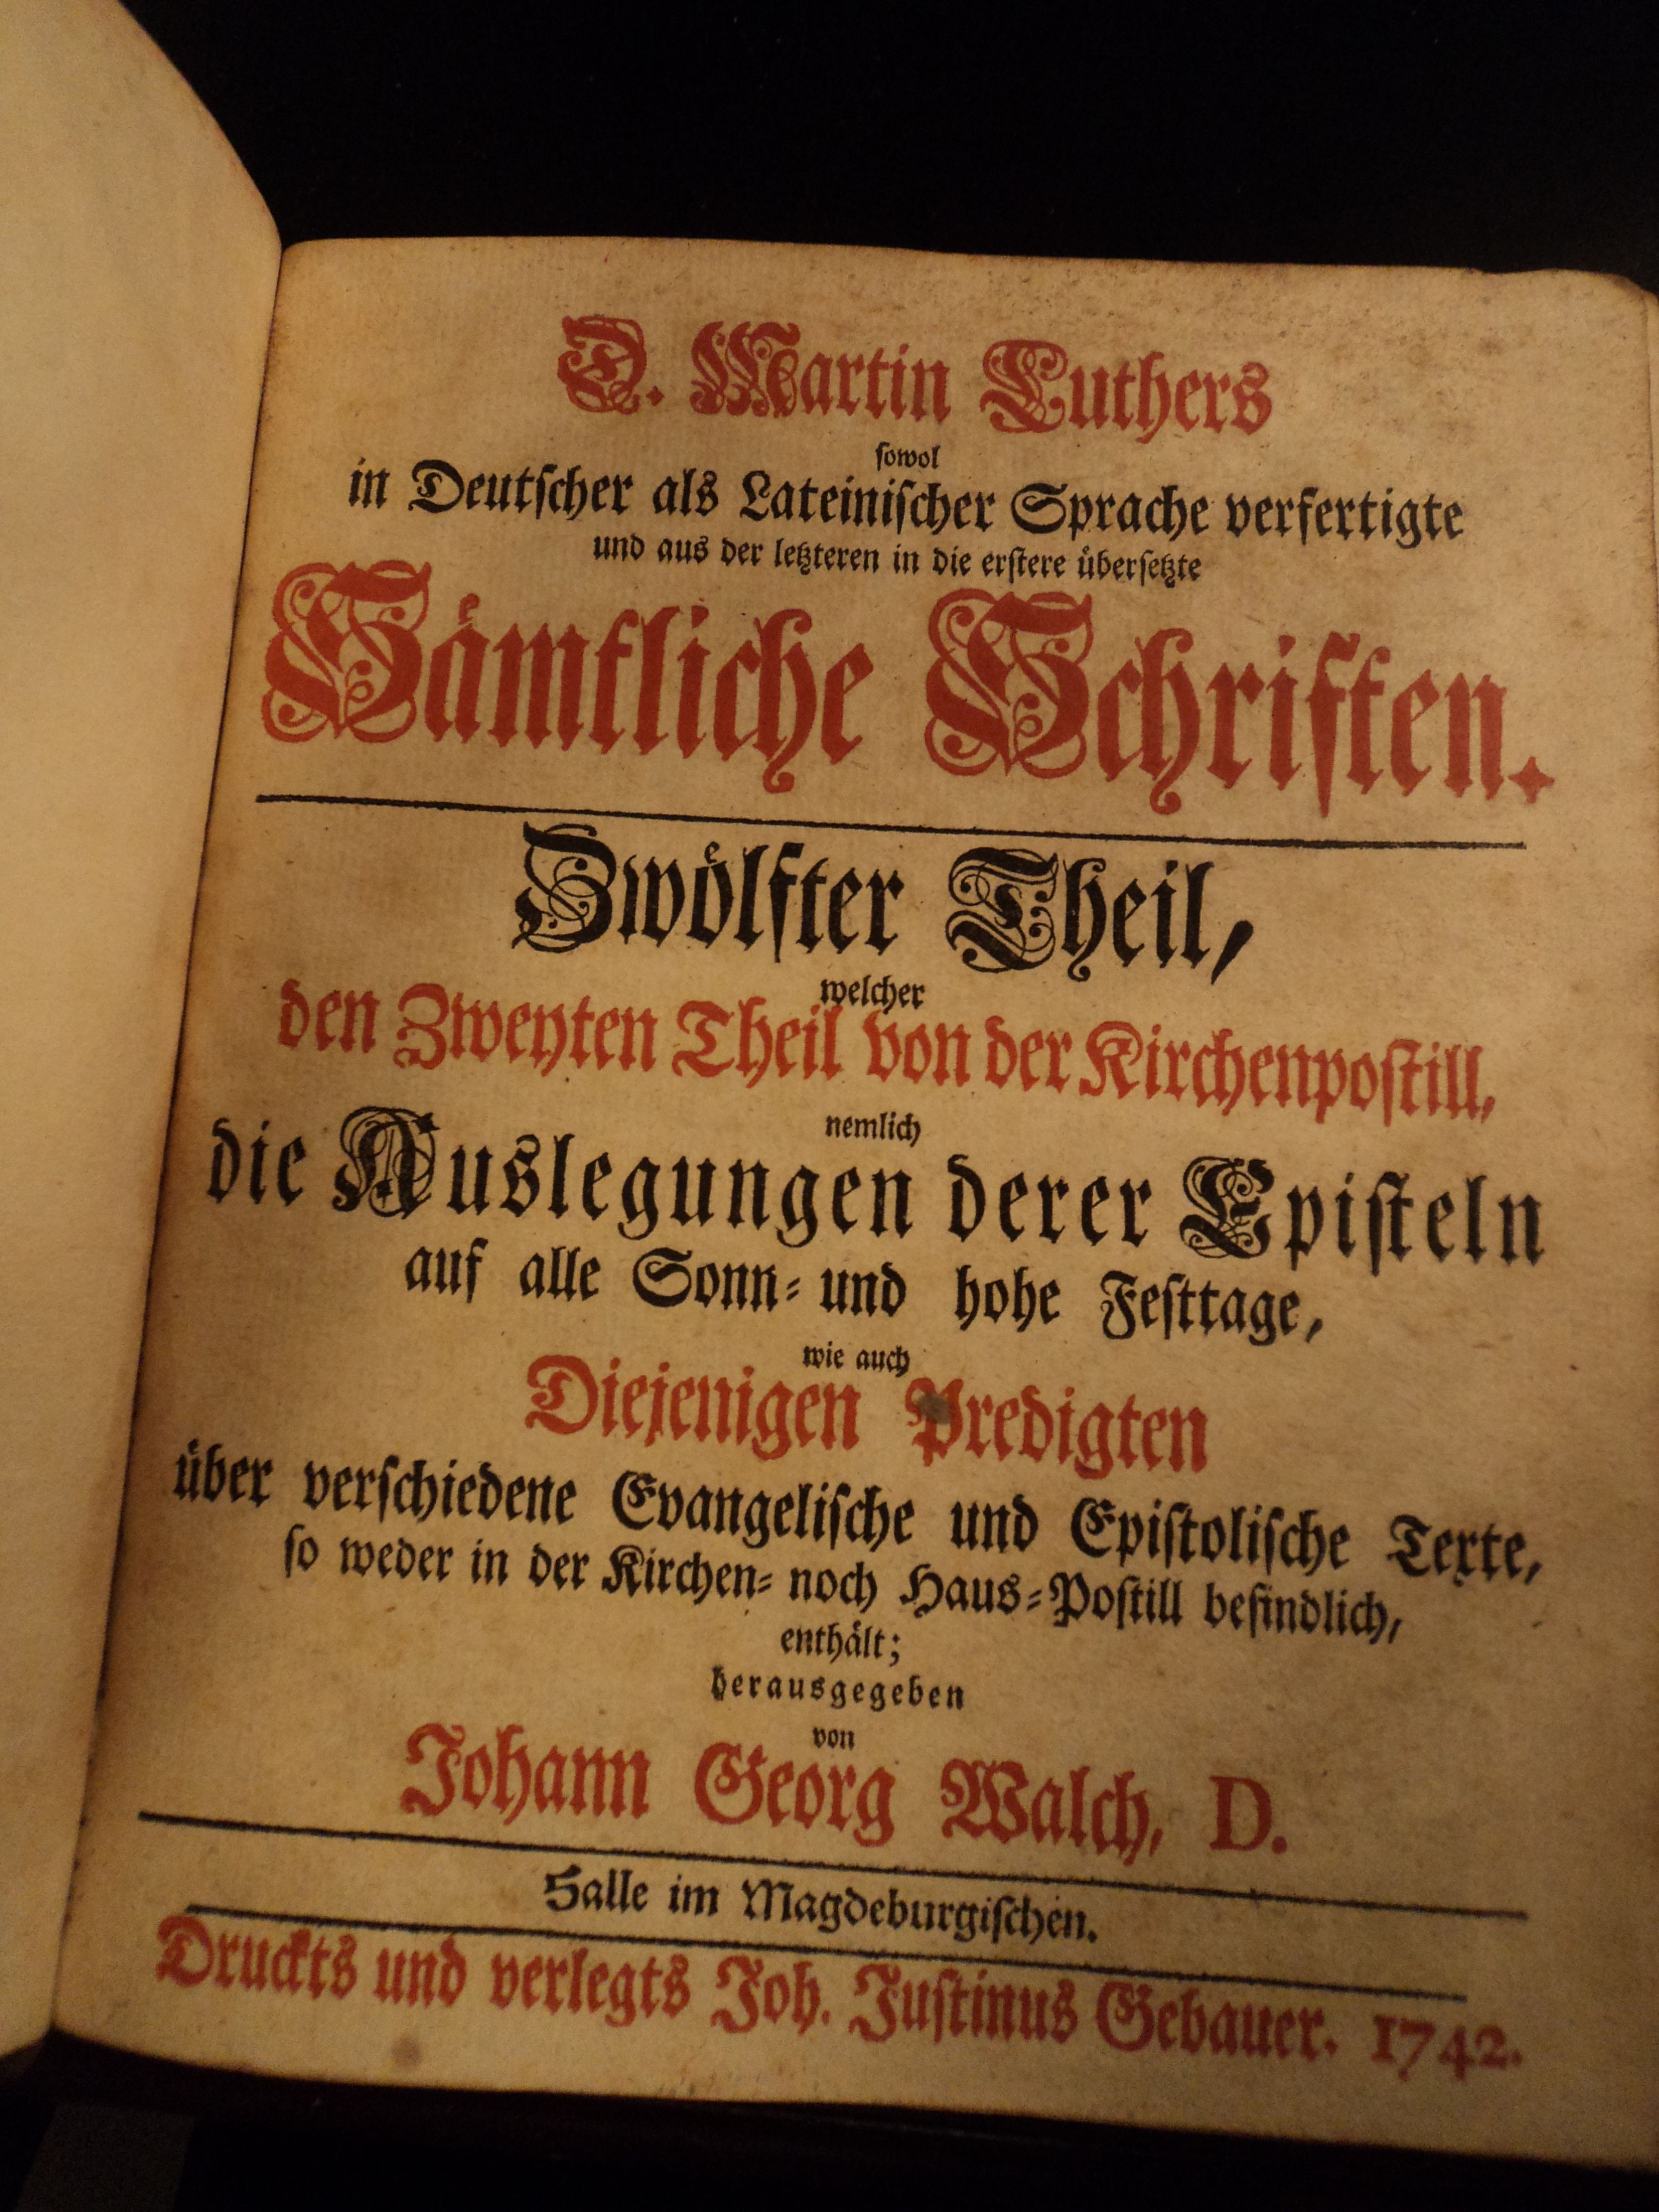 D. Martin Luthers
sowol
in Deutscher als Lateinischer Sprache verfertigte
und aus der letzteren in die erstere übersetzte
Sämtliche Schriften.
Zwölfter Theil,
welcher
den Zweyten Theil von der Kirchenpostill,
nemlich
die Auslegungen derer Episteln
auf alle Sonn- und hohe Festtage,
wie auch
Diejenigen Predigten
über verschiedene Evangelische und Epistolische Texte,
so weder in der Kirchen- noch Haus-Postill befindlich,
enthält;
herausgegeben
von
Johann Georg Walch, D.
Halle im Magdeburgischen.
Druckts und verlegts Joh. Justinus Gebauer. 1742.